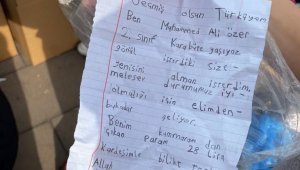 Geşmiş olsun Türkiyem
Ben Muhammed Ali özer
2. sınıf Karabük yaşıyoz
Gönül isterdiki size -
yenisini alman isterdim.
meleser durumumuz iyi -
olmadığı için elimden -
bukadar geliyor.
Benim kunmaran dan
çıkan param 28 lira
kardeşimle bilikte
Allah